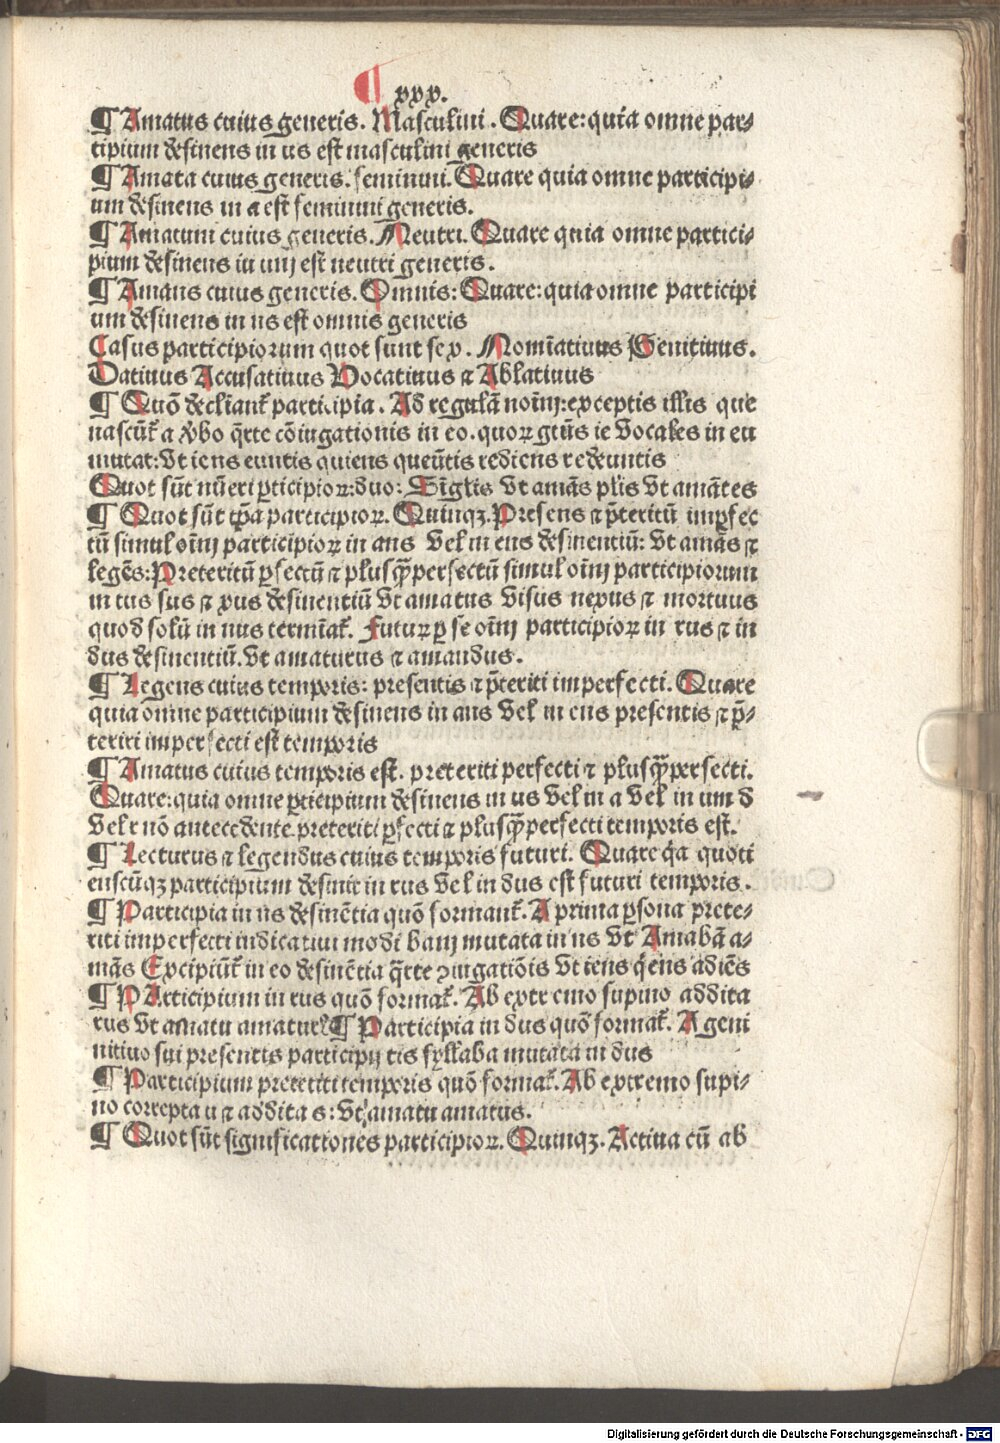 ¶ xxx.
¶ Amatus cuius generis. Masculini. Quare: quia omne par⸗
tipium desinens in us est masculini generis
¶ Amata cuius generis. feminini. Quare quia omne participi⸗
um desinens in a est feminini generis.
¶ Amatum cuius generis. Neutri. Quare quia omne partici⸗
pium desinens in um est neutri generis.
¶ Amans cuius generis. Omnis: Quare: quia omne participi
um desinens in ns est omnis generis
Casus participiorum quot sunt sex. Nomīatiuus Genitiuus.
Datiuus Accusatiuus Vocatiuus ⁊ Ablatiuus
¶ Quō declīant᷑ participia. Ad regulā noīm: exceptis illis que
nascūt᷑ a v̓bo q̄rte cōiugationis in eo. quoꝝ gtūs ie vocales in eu
mutat: vt iens euntis quiens queūtis rediens redeuntis
Quot sūt nūeri ꝑticipioꝝ: duo: Sīglis vt amās plīs vt amātes
¶ Quot sūt tꝑa participioꝝ. Quinqꝫ. Presens ⁊ p̄teritū imꝑfec
tū simul oīm participioꝝ in ans vel in ens desinentiū: vt amās ⁊
legēs: Preteritū ꝑfectū ⁊ plusq̄perfectū simul oīm participiorum
in tus sus ⁊ xus desinentiū vt amatus visus nexus ⁊ mortuus
quod solū in uus termīat᷑. Futuꝝ ꝑ se oīm participioꝝ in rus ⁊ in
dus desinentiū. vt amaturus ⁊ amandus.
¶ Legens cuius temporis: presentis ⁊ p̄teriti imperfecti. Quare
quia omne participium desinens in ans vel in ens presentis ⁊ p̄⸗
teriri imperfecti est temporis
¶ Amatus cuius temporis est. preteriti perfecti ⁊ plusq̄perfecti.
Quare: quia omne ꝑticipium desinens in us vel in a vel in um d
vel r nō antecedente preteriti ꝑfecti ⁊ plusq̄perfecti temporis est.
¶ Lecturus ⁊ legendus cuius temporis futuri. Quare q̇a quoti
enscūqꝫ participium desinit in rus vel in dus est futuri temporis.
¶ Participia in ns desinētia quō formant᷑. A prima ꝑsona prete⸗
riti imperfecti indicatiui modi bam mutata in ns vt Amabā a⸗
mās Excipiūt᷑ in eo desinētia q̄rte ꝯiugatiōis vt iens q̇ens adiēs
¶ PArticipium in rus quō format᷑. Ab extremo supino addita
rus vt amatu amaturꝰ ¶ Participia in dus quō format᷑. A geni
nitiuo sui presentis participij tis syllaba mutata in dus
¶ Participium preteriti temporis quō format᷑. Ab extremo supi⸗
no correpta u ⁊ addita s: vt amatu amatus.
¶ Quot sūt significationes participioꝝ. Quinqꝫ. Actiua cū ab
Digitalisierung gefördert durch die Deutsche Forschungsgemeinschaft - DFG